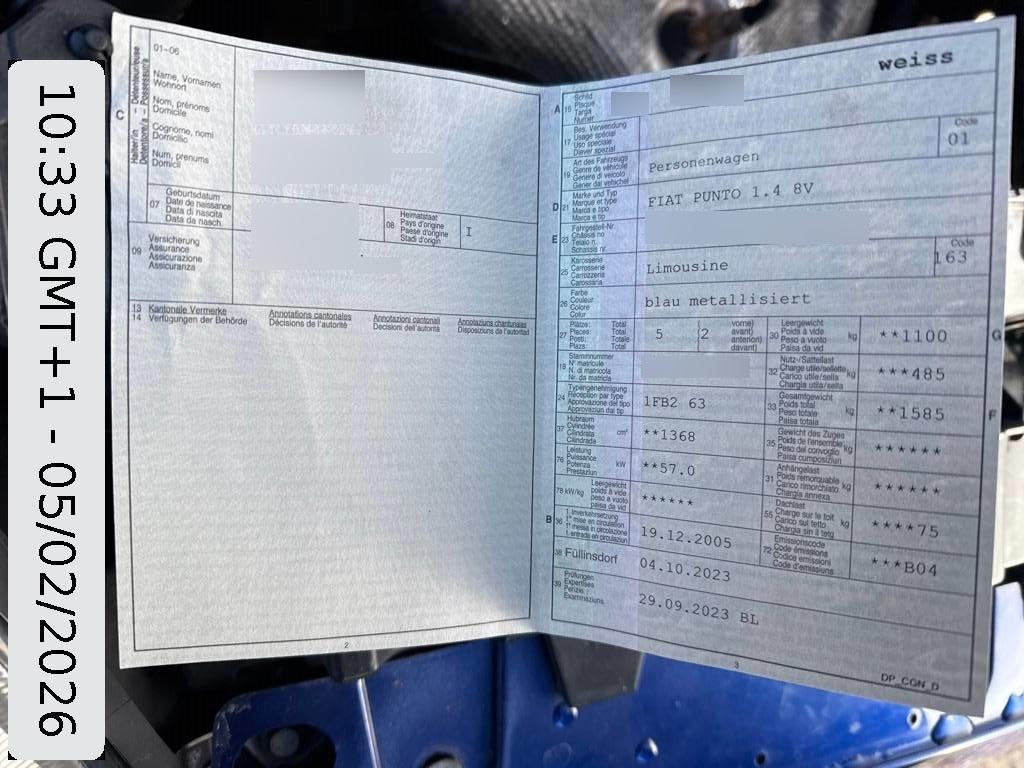 10:33 GMT+1 - 05/02/2026
C
Halter/in - Détenteur/euse
Detentore/a - Possessur/a
01-06
Name, Vornamen
Wohnort
Nom, prénoms
Domicile
Cognome, nomi
Domicilio
Num, prenums
Domicil
07
Geburtsdatum
Date de naissance
Data di nascita
Data da nasch.
08
Heimatstaat
Pays d'origine
Paese d'origine
Stadi d'origin
I
09
Versicherung
Assurance
Assicurazione
Assicuranza
13 Kantonale Vermerke
14 Verfügungen der Behörde
Annotations cantonales
Décisions de l'autorité
Annotazioni cantonali
Decisioni dell'autorità
Annotaziuns chantunalas
Disposiziuns da l'autoritad
2
weiss
A
15
Schild
Plaque
Targa
Numer
17
Bes. Verwendung
Usage spécial
Uso speciale
Diever spezial
Code
01
19
Art des Fahrzeugs
Genre de véhicule
Genere di veicolo
Gener dal vehichel
Personenwagen
D
21
Marke und Typ
Marque et type
Marca e tipo
Marca e tip
FIAT PUNTO 1.4 8V
E
23
Fahrgestell-Nr.
Châssis no
Telaio n.
Schassis nr.
25
Karosserie
Carrosserie
Carrozzeria
Carossaria
Limousine
Code
163
26
Farbe
Couleur
Colore
Colur
blau metallisiert
27
Plätze: Total
Places: Total
Posti: Totale
Plazs: Total
5
2
vorne)
avant)
anteriori)
davant)
30
Leergewicht
Poids à vide
Peso a vuoto
Paisa da vid
kg
**1100
G
18
Stammnummer
N° matricule
N. di matricola
Nr. da matricla
32
Nutz-/Sattellast
Charge utile/sellette
Carico utile/sella
Chargia utila/sella
kg
***485
24
Typengenehmigung
Réception par type
Approvazione del tipo
Approvaziun dal tip
1FB2 63
33
Gesamtgewicht
Poids total
Peso totale
Paisa totala
kg
**1585
F
37
Hubraum
Cylindrée
Cilindrata
Cilindrada
cm³
**1368
35
Gewicht des Zuges
Poids de l'ensemble
Peso del convoglio
Paisa cumposiziun
kg
******
76
Leistung
Puissance
Potenza
Prestaziun
kW
**57.0
31
Anhängelast
Poids remorquable
Carico rimorchiato
Chargia annexa
kg
******
78 kW/kg
Leergewicht
poids à vide
peso a vuoto
paisa da vid
******
55
Dachlast
Charge sur le toit
Carico sul tetto
Chargia sin il tetg
kg
****75
B
36
1. Inverkehrsetzung
1re mise en circulation
1a messa in circolazione
1. entrada en circulaziun
19.12.2005
72
Emissionscode
Code émissions
Codice emissioni
Code d'emissiuns
***B04
38
Füllinsdorf
04.10.2023
39
Prüfungen
Expertises
Perizie
Examinaziuns
29.09.2023 BL
3
DP_CGN_D